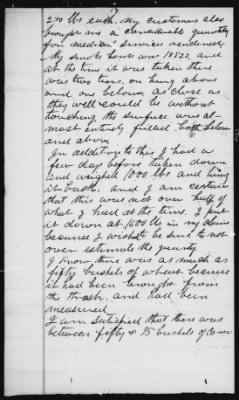 17
200 lbs each. My customers also
brought me a considerable quantity
for medical services rendered.
My smoke house was 18x22 and
at the time it was taken there
was two tiers, on hung above
and one below as close as
they well could be without
touching the surface was al-
most entirely filled both below
and above.
In addition to this I had a
few day before taken down
and weighed 1000 lbs and hung
it back, and I am certain
that this was not over half of
what I had at the time. I put
it down at 1600 lbs in my claim
because I wished to be sure to not
over estimate the quantity
I know there was as much as
fifty bushels of wheat because
it had been brought from
the thrash. and had been
measured
I am satisfied that there was
between fifty & 75 bushels of corn